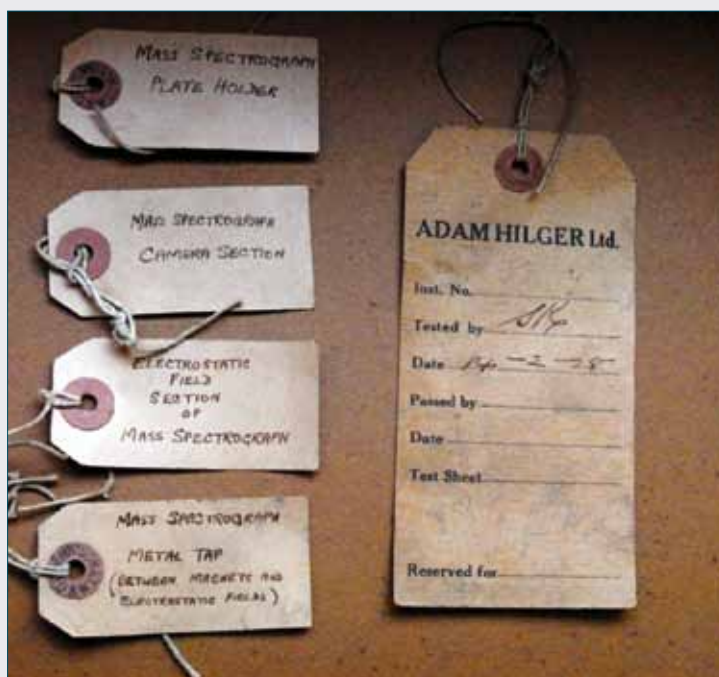 MASS SPECTROGRAPH
PLATE HOLDER
MASS SPECTROGRAPH
CAMERA SECTION
ELECTROSTATIC
FIELD
SECTION
OF
MASS SPECTROGRAPH
MASS SPECTROGRAPH
METAL TAP
(BETWEEN MAGNETS AND
ELECTROSTATIC FIELDS)
ADAM HILGER Ltd.
Inst. No.
Tested by
Date
Passed by
Date
Test Sheet
Reserved for